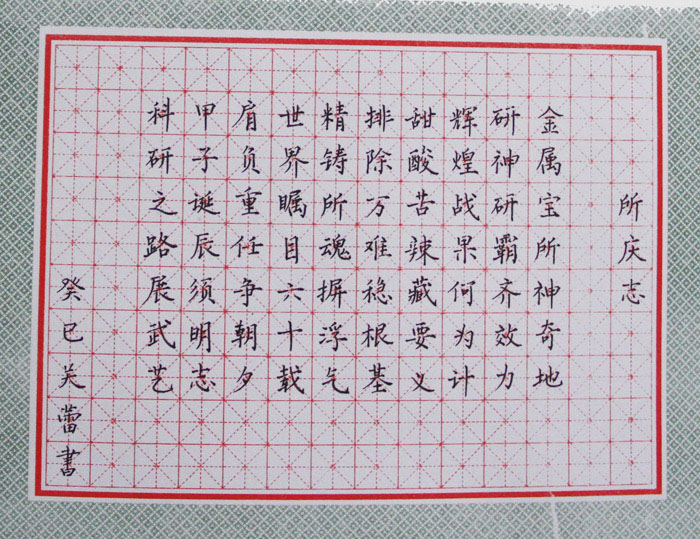 所庆志
金属宝所神奇地
研神研霸齐效力
辉煌战果何为计
甜酸苦辣藏要义
排除万难稳根基
精铸所魂摒浮气
世界瞩目六十载
肩负重任争朝夕
甲子诞辰须明志
科研之路展武艺
癸巳关蕾书